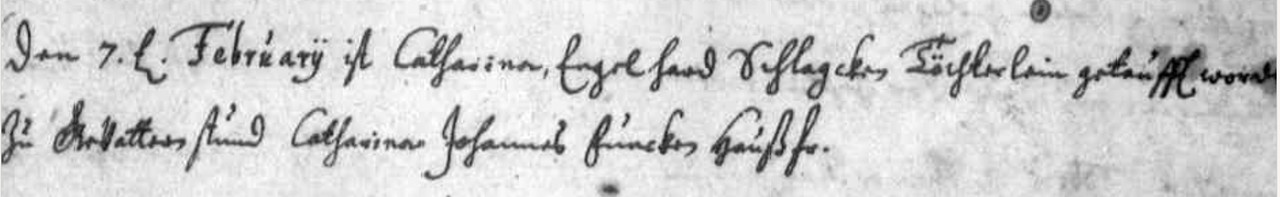 Den 7. t. Februarÿ ist Catharina, Engelhard Schlagcken Töchterlein getaufft word
Zu Gevattern stund Catharina Johannes Funcken Haußfr.